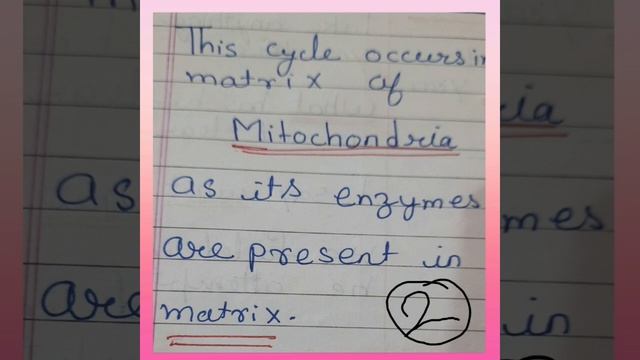 This cycle occurs in
matrix of
Mitochondria
as its enzymes
are present in
matrix.
2